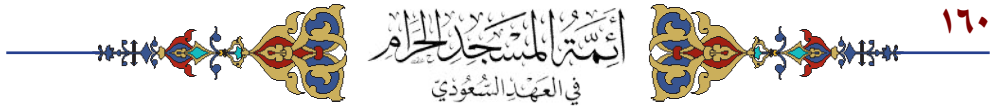 ١٦٠
أَئِمَّةُ المَسْجِدِ الحَرَامِ
فِي العَهْدِ السُّعُودِيِّ